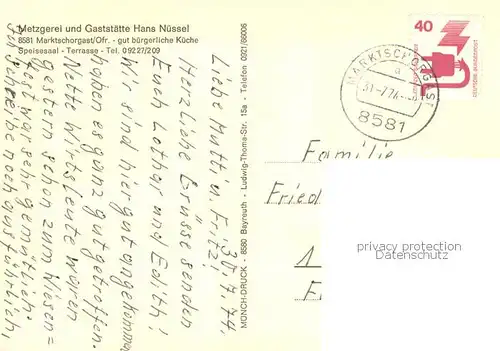 Metzgerei und Gaststätte Hans Nüssel
8581 Marktschorgast/Ofr. - gut bürgerliche Küche
Speisesaal - Terrasse - Tel. 09227/209
31.7.74.
Liebe Mutti u. Fritz!
Herzliche Grüsse senden
Euch Lothar und Edith!
Wir sind hier gut angekommen
haben es ganz gut getroffen.
Nette Wirtsleute waren
gestern schon zum Wiesen=
fest war sehr gemütlich.
Ich schreibe noch ausführlich,
MÜNCH-DRUCK - 8580 Bayreuth - Ludwig-Thoma-Str. 15a - Telefon 0921/66006
40
DEUTSCHE BUNDESPOST
MARKTSCHORGAST
a
31.-7.74.
8581
Familie
Fried
1
privacy protection
oldthing.de